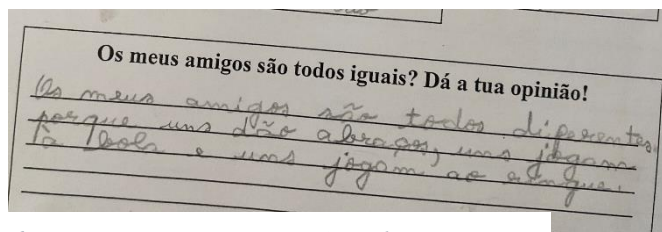 Os meus amigos são todos iguais? Dá a tua opinião!
Os meus amigos são todos diferentes
porque uns dão abraços, uns jogam
à bola e uns jogam ao